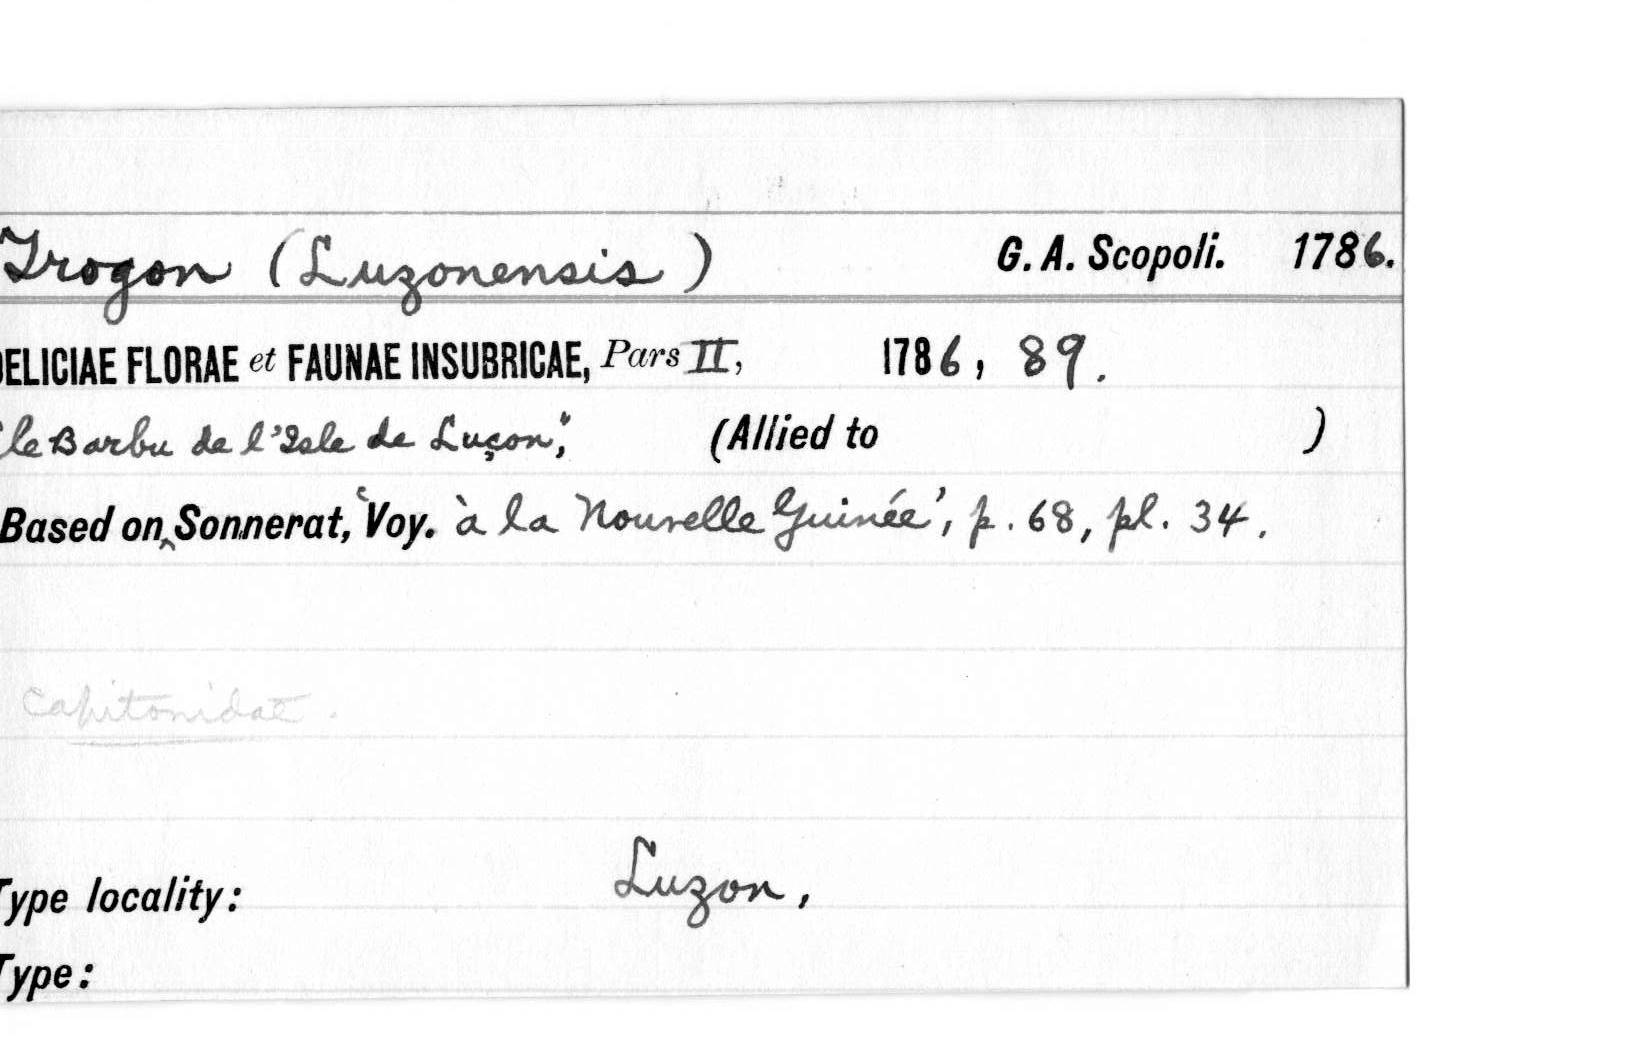 Trogon (Luzonensis) G. A. Scopoli. 1786.
DELICIAE FLORAE et FAUNAE INSUBRICAE, Pars II, 1786, 89.
"le Barbu de l'Isle de Luçon", (Allied to )
Based on ‸ Sonnerat, 'Voy. à la Nouvelle Guinée', p. 68, pl. 34.
Capitonidae.
Type locality: Luzon,
Type: